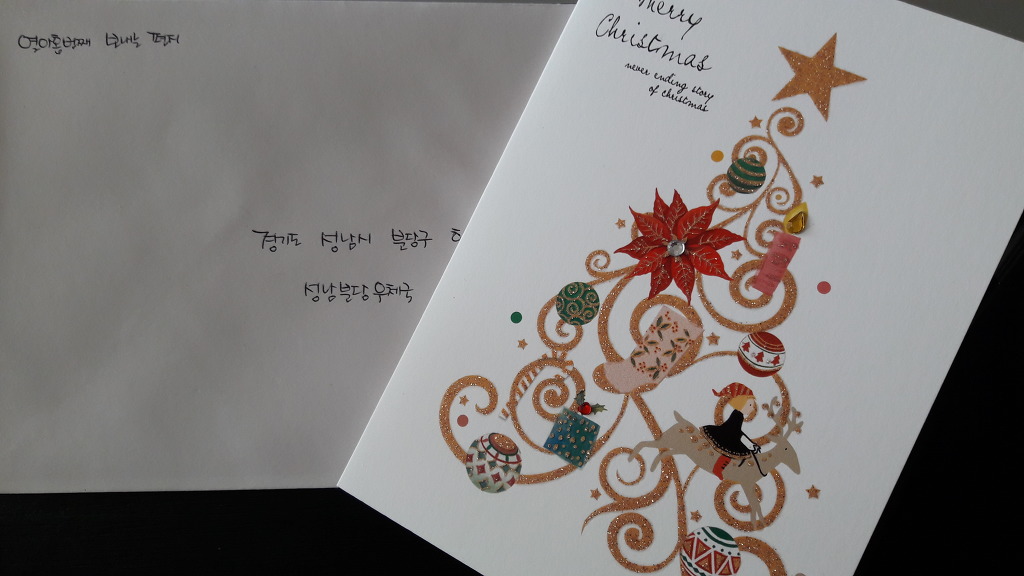 열아홉번째 보내는 편지
경기도 성남시 분당구
성남분당우체국
Merry
Christmas
never ending story
of christmas